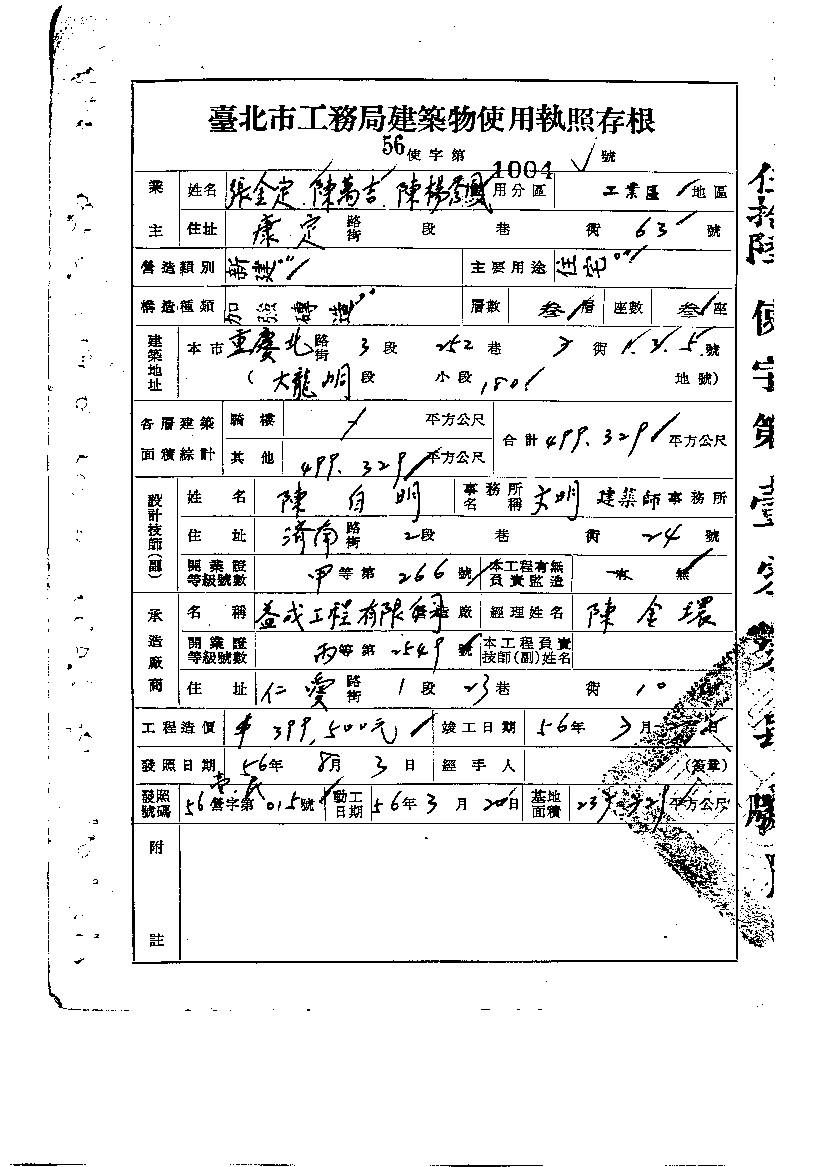 臺北市工務局建築物使用執照存根
56使字第1004號
業主 姓名 張金定 陳萬吉 陳楊 鳳 用分區 工業區 地區
住址 康定 路街 段 巷 衖 63 號
營造類別 新建 主要用途 住宅
構造種類 加強磚造 層數 叁層 座數 叁座
建築地址 本市重慶北路街 3段 252巷 衖 1.3.5號
(大龍峒段 小段 180 地號)
各層建築面積綜計 騎樓 平方公尺 合計 499.329 平方公尺
其他 499.329 平方公尺
設計技師(副) 姓名 陳自明 事務所名稱 文明 建築師事務所
住址 濟南路街 2段 巷 衖 24號
開業證等級號數 甲等第266號 本工程有無負責監造 有 無
承造廠商 名稱 益成工程有限 造廠 經理姓名 陳金環
開業證等級號數 丙等第2549號 本工程負責技師(副)姓名
住址 仁愛路街 1段 23巷 衖 10
工程造價 399,500元 竣工日期 56年 月 日
發照日期 56年8月3日 經手人 (簽章)
發照號碼 56營字第015號 動工日期 56年3月20日 基地面積 平方公尺
附註
伍拾陸使字第壹